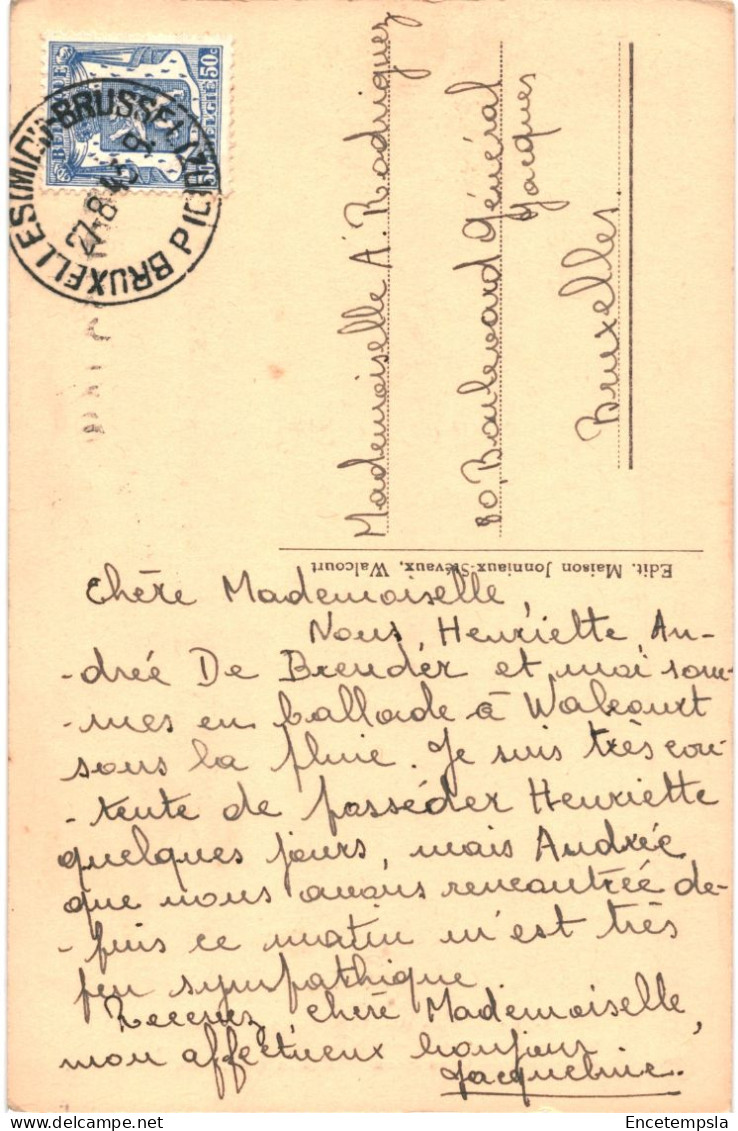 BELGIQUE BELGIË 50c
BRUXELLES (MIDI)-BRUSSEL (ZUID)
27-8
Mademoiselle A. Rodriguez
80, Boulevard Général
Jacques
Bruxelles
Edit. Maison Jonniaux-Stévaux, Walcourt
Chère Mademoiselle,
Nous, Henriette, An-
-drée De Breudér et moi som-
-mes en ballade à Walcourt
sous la pluie. Je suis très con-
-tente de posséder Henriette
quelques jours, mais Andrée
que nous avons rencontrée de-
-puis ce matin m'est très
peu sympathique.
Recevez, chère Mademoiselle,
mon affectueux bonjour
Jacqueline.
© Encetempsla